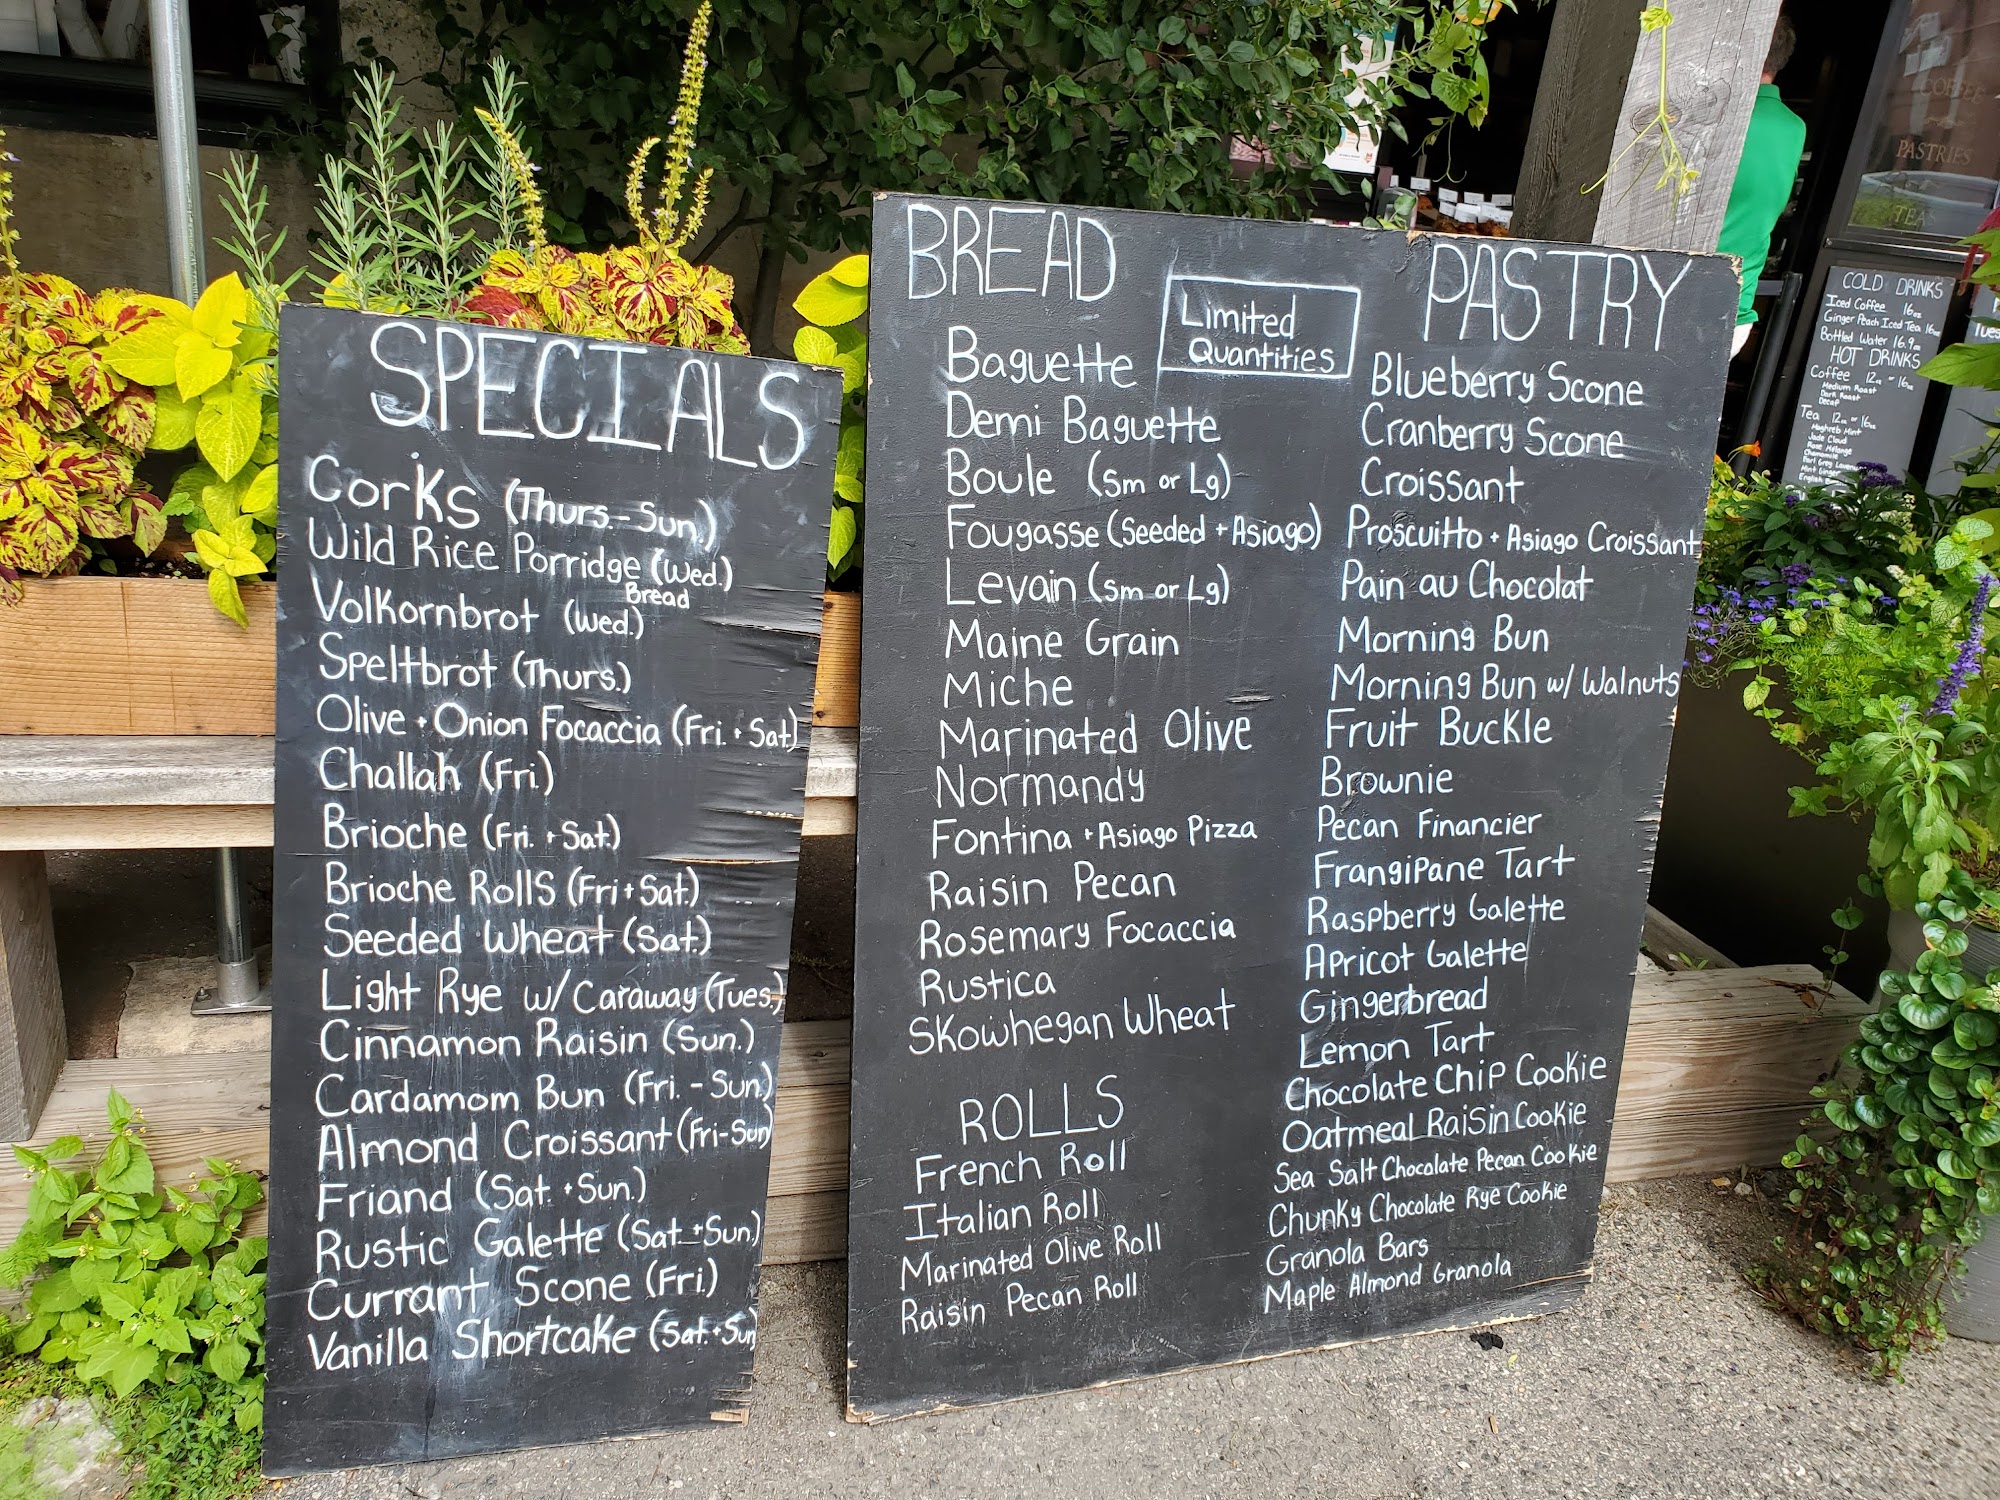 SPECIALS
Corks (Thurs.-Sun.)
Wild Rice Porridge (Wed.)
Bread
Volkornbrot (Wed.)
Speltbrot (Thurs.)
Olive + Onion Focaccia (Fri. + Sat)
Challah (Fri.)
Brioche (Fri. + Sat.)
Brioche Rolls (Fri + Sat.)
Seeded Wheat (Sat.)
Light Rye w/ Caraway (Tues.)
Cinnamon Raisin (Sun.)
Cardamom Bun (Fri. - Sun.)
Almond Croissant (Fri-Sun)
Friand (Sat. + Sun.)
Rustic Galette (Sat. + Sun.)
Currant Scone (Fri.)
Vanilla Shortcake (Sat. + Sun)
BREAD
Limited
Quantities
Baguette
Demi Baguette
Boule (Sm or Lg)
Fougasse (Seeded + Asiago)
Levain (Sm or Lg)
Maine Grain
Miche
Marinated Olive
Normandy
Fontina + Asiago Pizza
Raisin Pecan
Rosemary Focaccia
Rustica
Skowhegan Wheat
ROLLS
French Roll
Italian Roll
Marinated Olive Roll
Raisin Pecan Roll
PASTRY
Blueberry Scone
Cranberry Scone
Croissant
Proscuitto + Asiago Croissant
Pain au Chocolat
Morning Bun
Morning Bun w/ Walnuts
Fruit Buckle
Brownie
Pecan Financier
Frangipane Tart
Raspberry Galette
Apricot Galette
Gingerbread
Lemon Tart
Chocolate Chip Cookie
Oatmeal Raisin Cookie
Sea Salt Chocolate Pecan Cookie
Chunky Chocolate Rye Cookie
Granola Bars
Maple Almond Granola
COFFEE
PASTRIES
TEAS
COLD DRINKS
Iced Coffee 16oz
Ginger Peach Iced Tea 16oz
Bottled Water 16.9oz
HOT DRINKS
Coffee 12oz or 16oz
Medium Roast
Dark Roast
Decaf
Tea 12oz or 16oz
Maghreb Mint
Jade Cloud
Rose Melange
Chamomile
Earl Grey
Mint Ginger
English
Tues